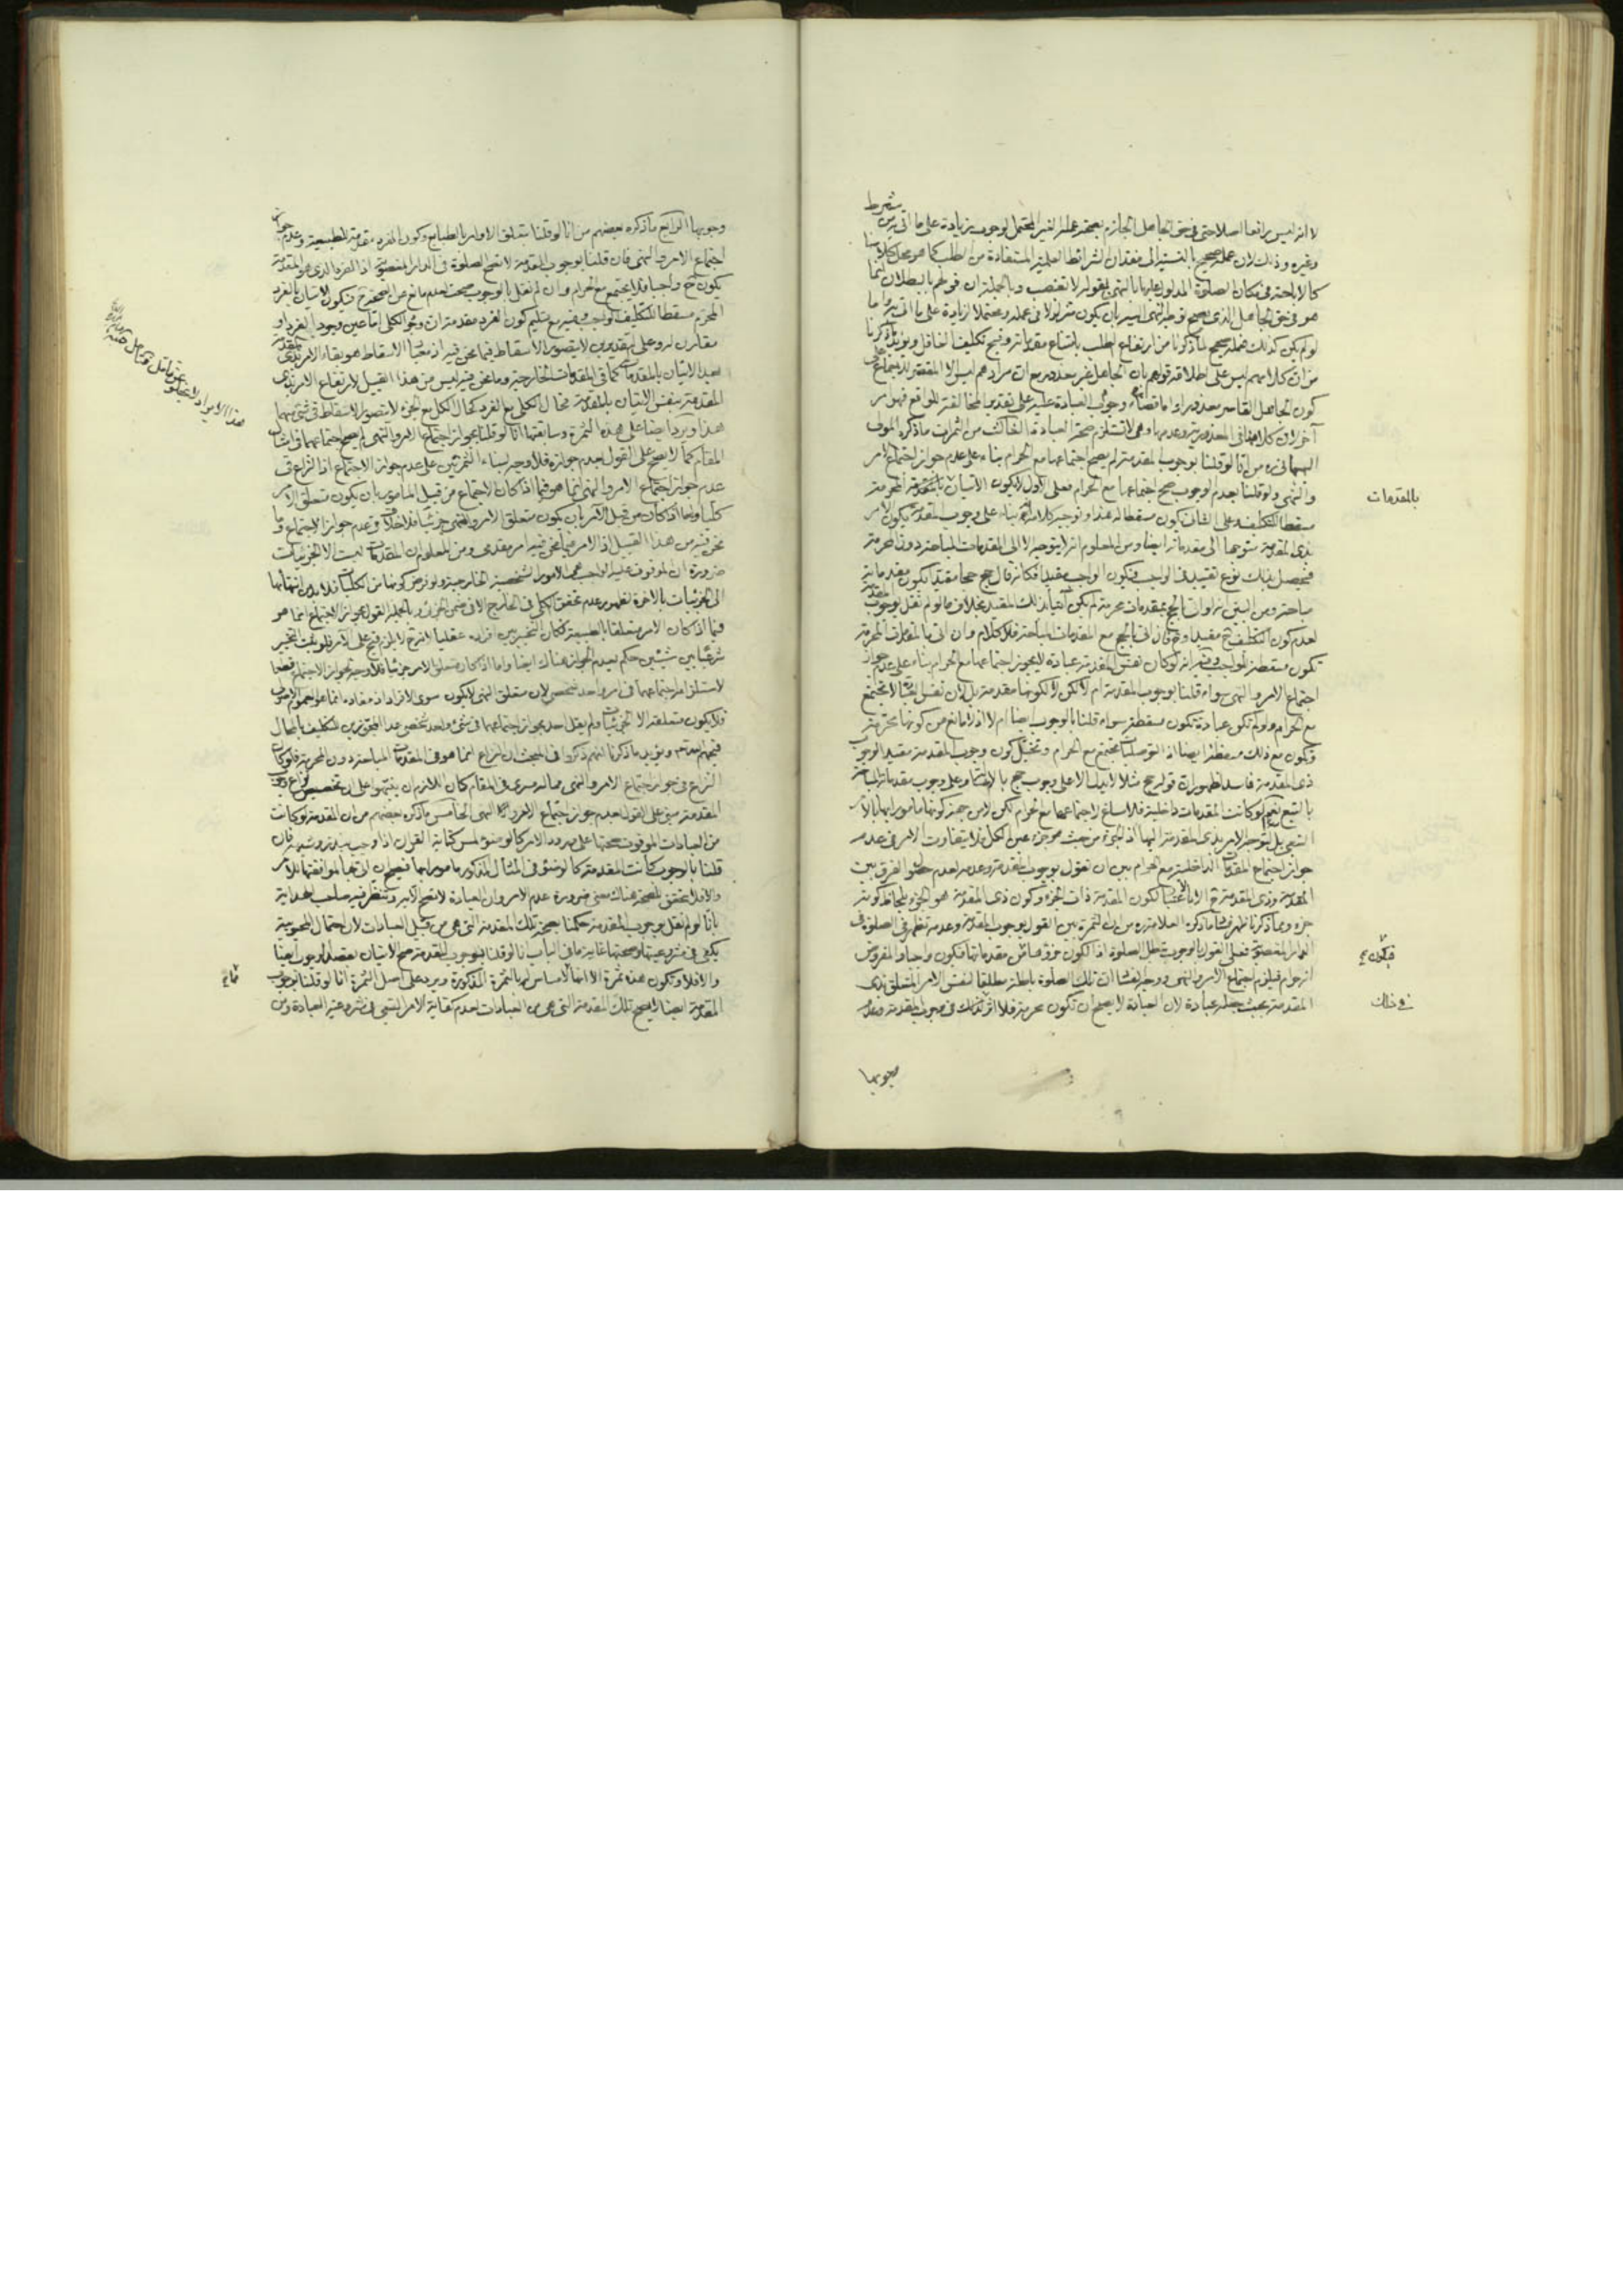 لا انه ليس رافعا اصلا حتى في حق الجاهل الجازم بصحة عمله الغير المحتمل لوجوب زيادة على ما اتى به من شرط
وغيره وذلك لان عمله صحيح بالنسبة الى فقدان الشرائط العلمية المستفادة من الطلب كما هو محل كلامنا
كالاباحة في مكان الصلوة المدلول عليها بالنهى بقوله لا تغصب وبالجملة ان قولهم بالبطلان انما
هو في حق الجاهل الذى يصح توجه النهى اليه بان يكون متزلزلا في عمله ومحتملا لزيادة على ما اتى به واما
لو لم يكن كذلك فعمله صحيح لما ذكرنا من ارتفاع الطلب بامتناع مقدماته وقبح تكليف الغافل ويؤيد ما ذكرنا
من ان كلامهم ليس على اطلاقه قولهم بان الجاهل غير معذور مع ان مرادهم ليس الا المقصر
كون الجاهل القاصر معذورا واما وجوب العبادة عليه على تقدير المخالفة للواقع فهو امر
آخر لان كلامنا في المعذورية وعدمها وهى لا تستلزم صحة العبادة الثالث من الثمرات ما ذكره المولى
البهبهانى ره من انا لو قلنا بوجوب المقدمة لم يصح اجتماعها مع الحرام بناء على عدم جواز اجتماع الامر
والنهى ولو قلنا بعدم الوجوب صح اجتماعها مع الحرام فعلى الاول لا يكون الاتيان بالمقدمة المحرمة
مسقطا للتكليف وعلى الثانى يكون مسقطا له هذا وتوجيه كلامه انه بناء على وجوب المقدمة يكون الامر
بذى المقدمة متوجها الى مقدماته ايضا ومن المعلوم انه لا يتوجه الا الى المقدمات المباحة دون المحرمة
فيحصل بذلك نوع تقييد في الواجب فيكون الواجب مقيدا فكانه قال حج حجا مقيدا بكون مقدماته
مباحة ومن البين انه لو اتى بالحج بمقدمات محرمة لم يكن آتيا بذلك المقيد بخلاف ما لو لم نقل بوجوب المقدمة
لعدم كون التكليف ح مقيدا وح فان اتى بالحج مع المقدمات المباحة فلا كلام وان اتى بالمقدمات المحرمة
تكون مسقطة للواجب وفيه انه لو كان نفس المقدمة عبادة لا يجوز اجتماعها مع الحرام بناء على عدم جواز
اجتماع الامر والنهى سواء قلنا بوجوب المقدمة ام لا لكن لا لكونها مقدمة بل لان نفس العبادة لا تجتمع
مع الحرام ولو لم تكن عبادة تكون مسقطة سواء قلنا بالوجوب ايضا ام لا اذ لا مانع من كونها محرمة
وتكون مع ذلك مسقطة ايضا اذ التوصليات تجتمع مع الحرام وتخيل كون وجوب المقدمة مقيد الوجوب
ذى المقدمة فاسد لظهور ان قوله حج مثلا لا يدل الا على وجوب حج بالاطلاق وعلى وجوب مقدماته المباحة
بالتبع نعم لو كانت المقدمات داخلية فلا مساغ لاجتماعها مع الحرام لكن لا من جهة كونها مامورا بها بالامر
التبعى بل لتوجه الامر بذى المقدمة اليها اذ الجزء من حيث هو جزء عين الكل فلا يتفاوت الامر في عدم
جواز اجتماع المقدمات الداخلية مع الحرام بين ان نقول بوجوب المقدمة وعدمه لعدم الفرق بين
المقدمة وذى المقدمة ح الا بالاعتبار لكون المقدمة ذات الجزء وكون ذى المقدمة هو الجزء بلحاظ كونه
جزء ومما ذكرنا ظهر فساد ما ذكره العلامة ره من ان الثمرة بين القول بوجوب المقدمة وعدمه تظهر في الصلوة في
الدار المغصوبة فعلى القول بالوجوب تبطل الصلوة اذ الكون جزء من مقدماتها فيكون واجبا والمفروض
انه حرام فيلزم اجتماع الامر والنهى ووجه الفساد ان تلك الصلوة باطلة مطلقا لنفس الامر المتعلق بذى
المقدمة بحيث جعله عبادة لان العبادة لا يصح ان تكون محرمة فلا اثر لذلك في وجوب المقدمة وعدم
وجوبها
بالمقدمات
فيكون
في ذلك
وجوبها الرابع ما ذكره بعضهم من انا لو قلنا بتعلق الاوامر بالطبايع وكون الفرد مقدمة للطبيعة وعدم جواز
اجتماع الامر والنهى فان قلنا بوجوب المقدمة لا تصح الصلوة في الدار المغصوبة اذ الفرد الذى هو المقدمة
يكون ح واجبا فلا يجتمع مع الحرام وان لم نقل بالوجوب صحت لعدم مانع عن الصحة ح فيكون الاتيان بالفرد
المحرم مسقطا للتكليف الواجب وفيه مع تسليم كون الفرد مقدمة ان وجود الكلى اما عين وجود الفرد او
مقارن له وعلى التقديرين لا يتصور الاسقاط فيما نحن فيه اذ معنى الاسقاط هو بقاء الامر بذى المقدمة
بعد الاتيان بالمقدمات كما في المقدمات الخارجية وما نحن فيه ليس من هذا القبيل لارتفاع الامر بذى
المقدمة بنفس الاتيان بالمقدمة فحال الكلى مع الفرد كحال الكل مع الجزء لا يتصور الاسقاط في شئ منهما
هذا ويرد ايضا على هذه الثمرة وسابقتها انا لو قلنا بجواز اجتماع الامر والنهى لم يصح اجتماعهما في امثال
المقام كما لا يصح على القول بعدم جوازه فلا وجه لبناء الثمرتين على عدم جواز الاجتماع اذ النزاع في
عدم جواز اجتماع الامر والنهى انما هو فيما اذا كان الاجتماع من قبل المامور بان يكون متعلق الامر
كليا واما اذا كان من قبل الآمر بان يكون متعلق الامر والنهى جزئيا فلا خلاف في عدم جواز الاجتماع وما
نحن فيه من هذا القبيل اذ الامر فيما نحن فيه امر مقدمى ومن المعلوم ان المقدمات ليست الا الجزئيات
ضرورة ان الموقوف عليه الواجب هى الامور الشخصية الخارجية ولو فرض كونها من الكليات فلا بد من انتهائها
الى الجزئيات بالاخرة لظهور عدم تحقق الكلى في الخارج الا في ضمن الجزئى وبالجملة القول بجواز الاجتماع انما هو
فيما اذا كان الامر متعلقا بالطبيعة فكان التخيير بين افراده عقليا
شرعيا بين شيئين حكم بعدم الجواز هناك ايضا واما اذا كان متعلق الامر جزئيا فلا وجه لجواز الاجتماع قطعا
لاستلزامه اجتماعهما في امر واحد شخصى لان متعلق النهى لا يكون سوى الافراد اذ مفاده انما هو العموم الاصولى
فلا يكون متعلقه الا الجزئيات ولم يقل احد بجواز اجتماعهما في شئ واحد شخصى عدا المجوزين للتكليف بالمحال
ويؤيد ما ذكرنا انهم ذكروا في المبحث ان النزاع انما هو في المقدمات المباحة دون المحرمة فلو كان
النزاع في جواز اجتماع الامر والنهى مما له مسرى في المقام كان اللازم ان ينبهوا على ان تخصيص النزاع
المقدمة مبنى على القول بعدم جواز اجتماع الامر والنهى الخامس ما ذكره بعضهم من ان المقدمة لو كانت
من العبادات الموقوفة صحتها على ورود الامر كالوضوء لمس كتابة القرآن اذا وجب بنذر وشبهه فان
قلنا بالوجوب كانت المقدمة كالوضوء في المثال المذكور مامورا بها فيصح ان اتى بها لموافقتها للامر
والا فلا تتحقق الصحة هناك معنى ضرورة عدم الامر وان العبادة لا تصح الا به وتنظر فيه صاحب الهداية
بانا لو لم نقل بوجوب المقدمة حكمنا بصحة تلك المقدمة التى هى من قبيل العبادات لان احتمال المحبوبية
يكفى في مشروعيتها وصحتها غاية ما في الباب انا لو قلنا بوجوب المقدمة صح الاتيان بقصد الوجوب ايضا
والا فلا وتكون هذه ثمرة الا انها لا مساس لها بالثمرة المذكورة ويرد على اصل الثمرة انا لو قلنا بوجوب
المقدمة ايضا لا تصح تلك المقدمة التى هى من العبادات لعدم كفاية الامر التبعى في شرعية العبادة ومن
هذا الايراد لا يخلو عن تامل